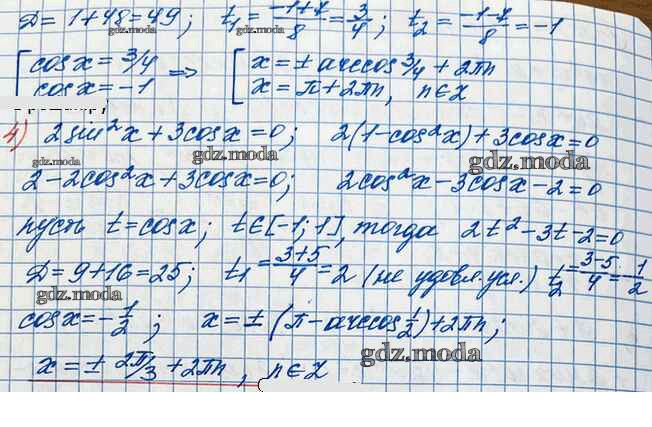 D = 1+48 = 49; t₁ = (-1+7)/8 = 3/4; t₂ = (-1-7)/8 = -1
gdz.moda
[ cosx = 3/4 => [ x = ± arccos 3/4 + 2πn
cosx = -1 x = π + 2πn, n∈Z
gdz.moda
4) 2sin²x + 3cosx = 0; 2(1-cos²x) + 3cosx = 0
gdz.moda gdz.moda
2-2cos²x+3cosx=0; 2cos²x-3cosx-2=0
gdz.moda
пусть t = cosx; t∈[-1; 1], тогда 2t²-3t-2=0
D = 9+16 = 25; t₁ = (3+5)/4 = 2 (не удовл. усл.) t₂ = (3-5)/4 = -1/2
gdz.moda
cosx = -1/2; x = ± (π - arccos 1/2) + 2πn;
gdz.moda
x = ± 2π/3 + 2πn, n∈Z